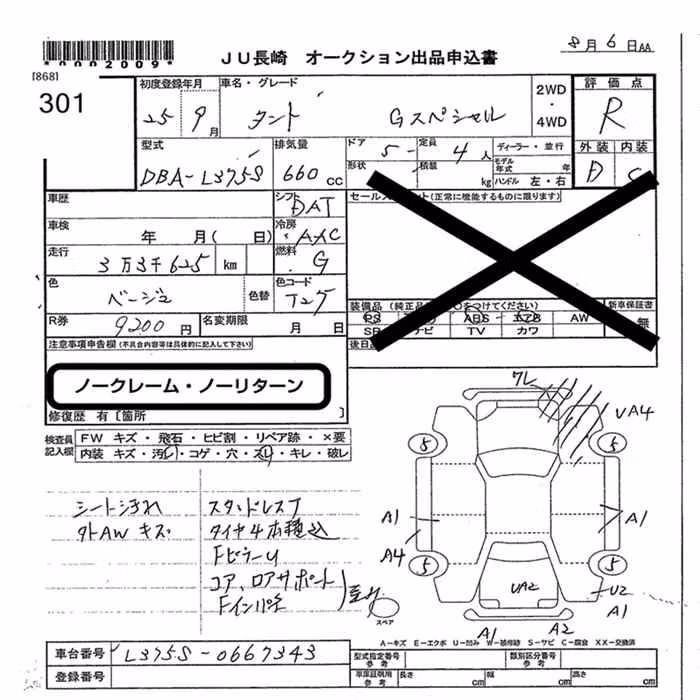 *0002009*
JU長崎 オークション出品申込書
8月6日AA
[868]
301
初度登録年月
25 9月
車名・グレード
タント Gスペシャル
2WD
・
4WD
評価点
R
型式
DBA-L375S
排気量
660 cc
ドア
5
定員
4人
形状
積載
kg
ディーラー・並行
モデル年式 年
ハンドル 左・右
外装 内装
D C
車歴
シフト
DAT
車検
年 月( 日)
冷房
AAC
走行
3万3千625 km
燃料
G
色
ベージュ
色替
色コード
T27
R券
9200円
名変期限
月 日
(正常に機能するものに限ります)
装備品
新車保証書
無
TV
カワ
AW
注意事項申告欄(不具合内容等は具体的に記入して下さい)
ノークレーム・ノーリターン
修復歴 有〔箇所 〕
検査員
記入欄
FW キズ・飛石・ヒビ割・リペア跡・×要
内装 キズ・汚レ・コゲ・穴・スレ・キレ・破レ
シート汚れ
外AWキズ
スタッドレス
タイヤ4本積込
Fピラーu
コア、ロアサポート
Fインパネ
ワレ
UA4
5
5
A1
A1
A4
5
5
UA2
U2
A1
A1
A2
スペア
A-キズ E-エクボ U-凹み W-補修跡 S-サビ C-腐食 XX-交換済
車台番号
L375S-0667343
登録番号
型式指定番号
参考
類別区分番号
参考
車庫証明用
参考
長さ
cm
幅
cm
高さ
cm